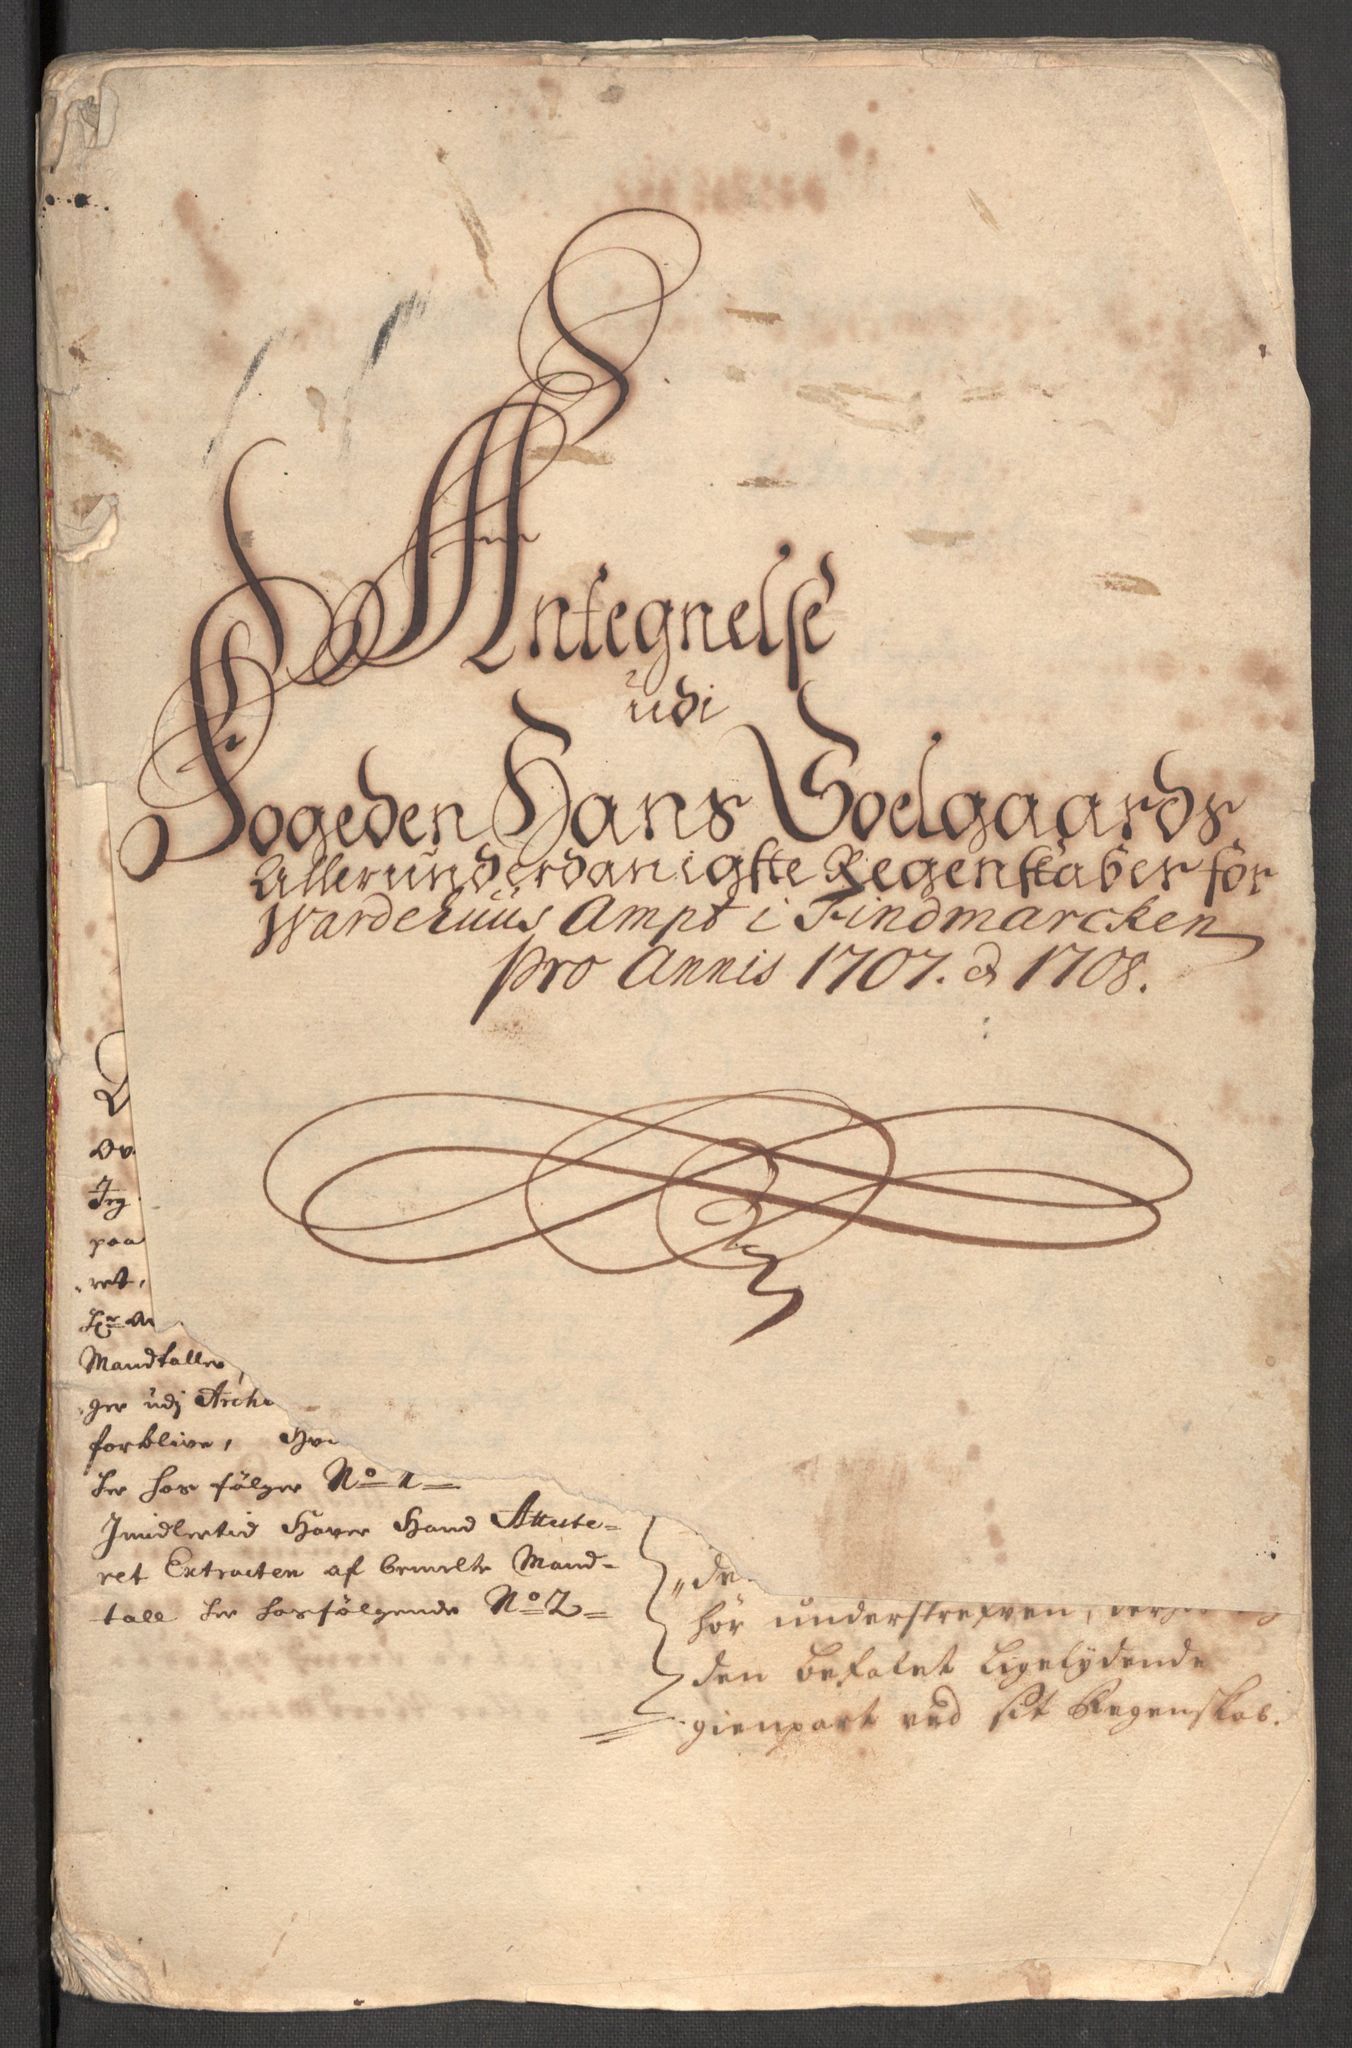 Antegnelse
udi
Fogeden Hans Soelgaards
Allerunderdanigste Regenskaber for
Wardehuus Ampt i Findmarcken
pro Annis 1707. & 1708.
ov
Jeg
paa
ret,
Mandtaller,
ger udj Arch
forblive, Hve
her hos følger No 1
Imidlertid Haver Hand Atteste=
ret Extracten af bemelte Mand=
tall her hosfølgende No 2
de
hör understrefven,
den befalet ligelydende
gienpart ved sit Regenskab.